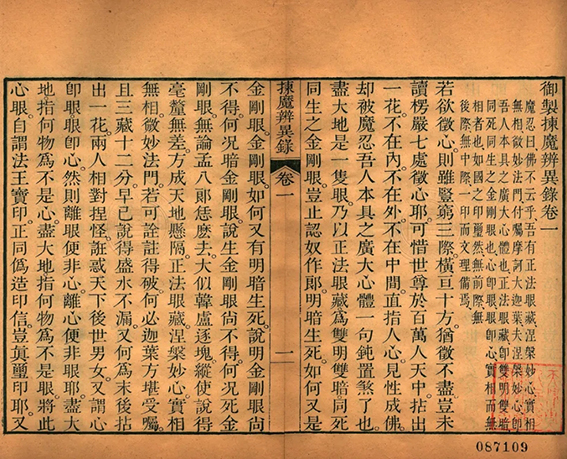 御製揀魔辨異錄卷一
魔忍曰佛不云乎吾有正法眼藏涅槃妙心實相
無相微妙法門付囑摩訶大迦葉夫涅槃妙心即
吾人本具之廣大心體也正法眼藏即雙明雙暗
同死同生之金剛眼也心即眼眼即心實相而無
相者也如國之印璽然無前際無
後際無中際一印而文理備焉
若欲徵心則雖豎窮三際橫亘十方猶徵不盡豈未
讀楞嚴七處徵心耶可惜世尊於百萬人天中拈出
一花不在內不在外不在中間直指人心見性成佛
却被魔忍吾人本具之廣大心體一句鈍置煞了也
盡大地是一隻眼乃以正法眼藏為雙明雙暗同死
同生之金剛眼豈止認奴作郎明暗生死如何又是
揀魔辨異錄 卷一 一
金剛眼金剛眼如何又有明暗生死說明金剛眼尚
不得何况暗金剛眼說生金剛眼尚不得何况死金
剛眼無論孟八郎恁麽去大似韓盧逐塊縱使說得
毫釐無差方成天地懸隔正法眼藏涅槃妙心實相
無相微妙法門若可詮註得破何必迦葉方堪受囑
且三藏十二分早已說得盛水不漏又何為末後拈
出一花兩人相對捏怪誑惑天下後世男女又謂心
即眼眼即心然則離眼便非心離心便非眼耶盡大
地指何物爲不是心盡大地指何物爲不是眼將此
心眼自謂法王寶印正同僞造印信豈眞璽印耶又
087109